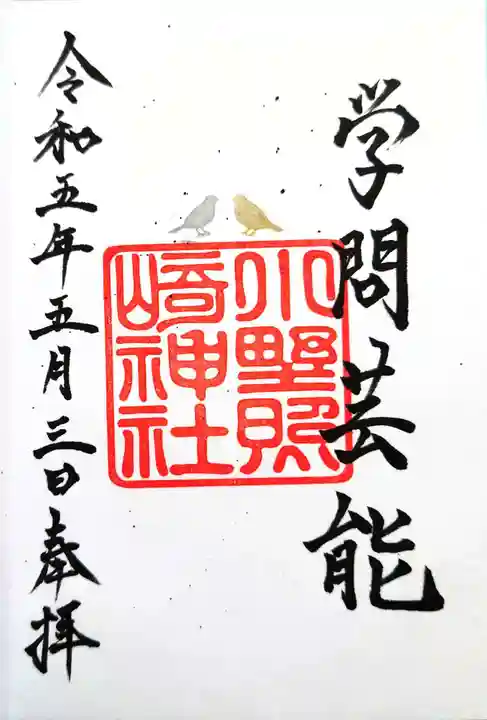 学問芸能
小野照
崎神社
令和五年五月三日奉拝